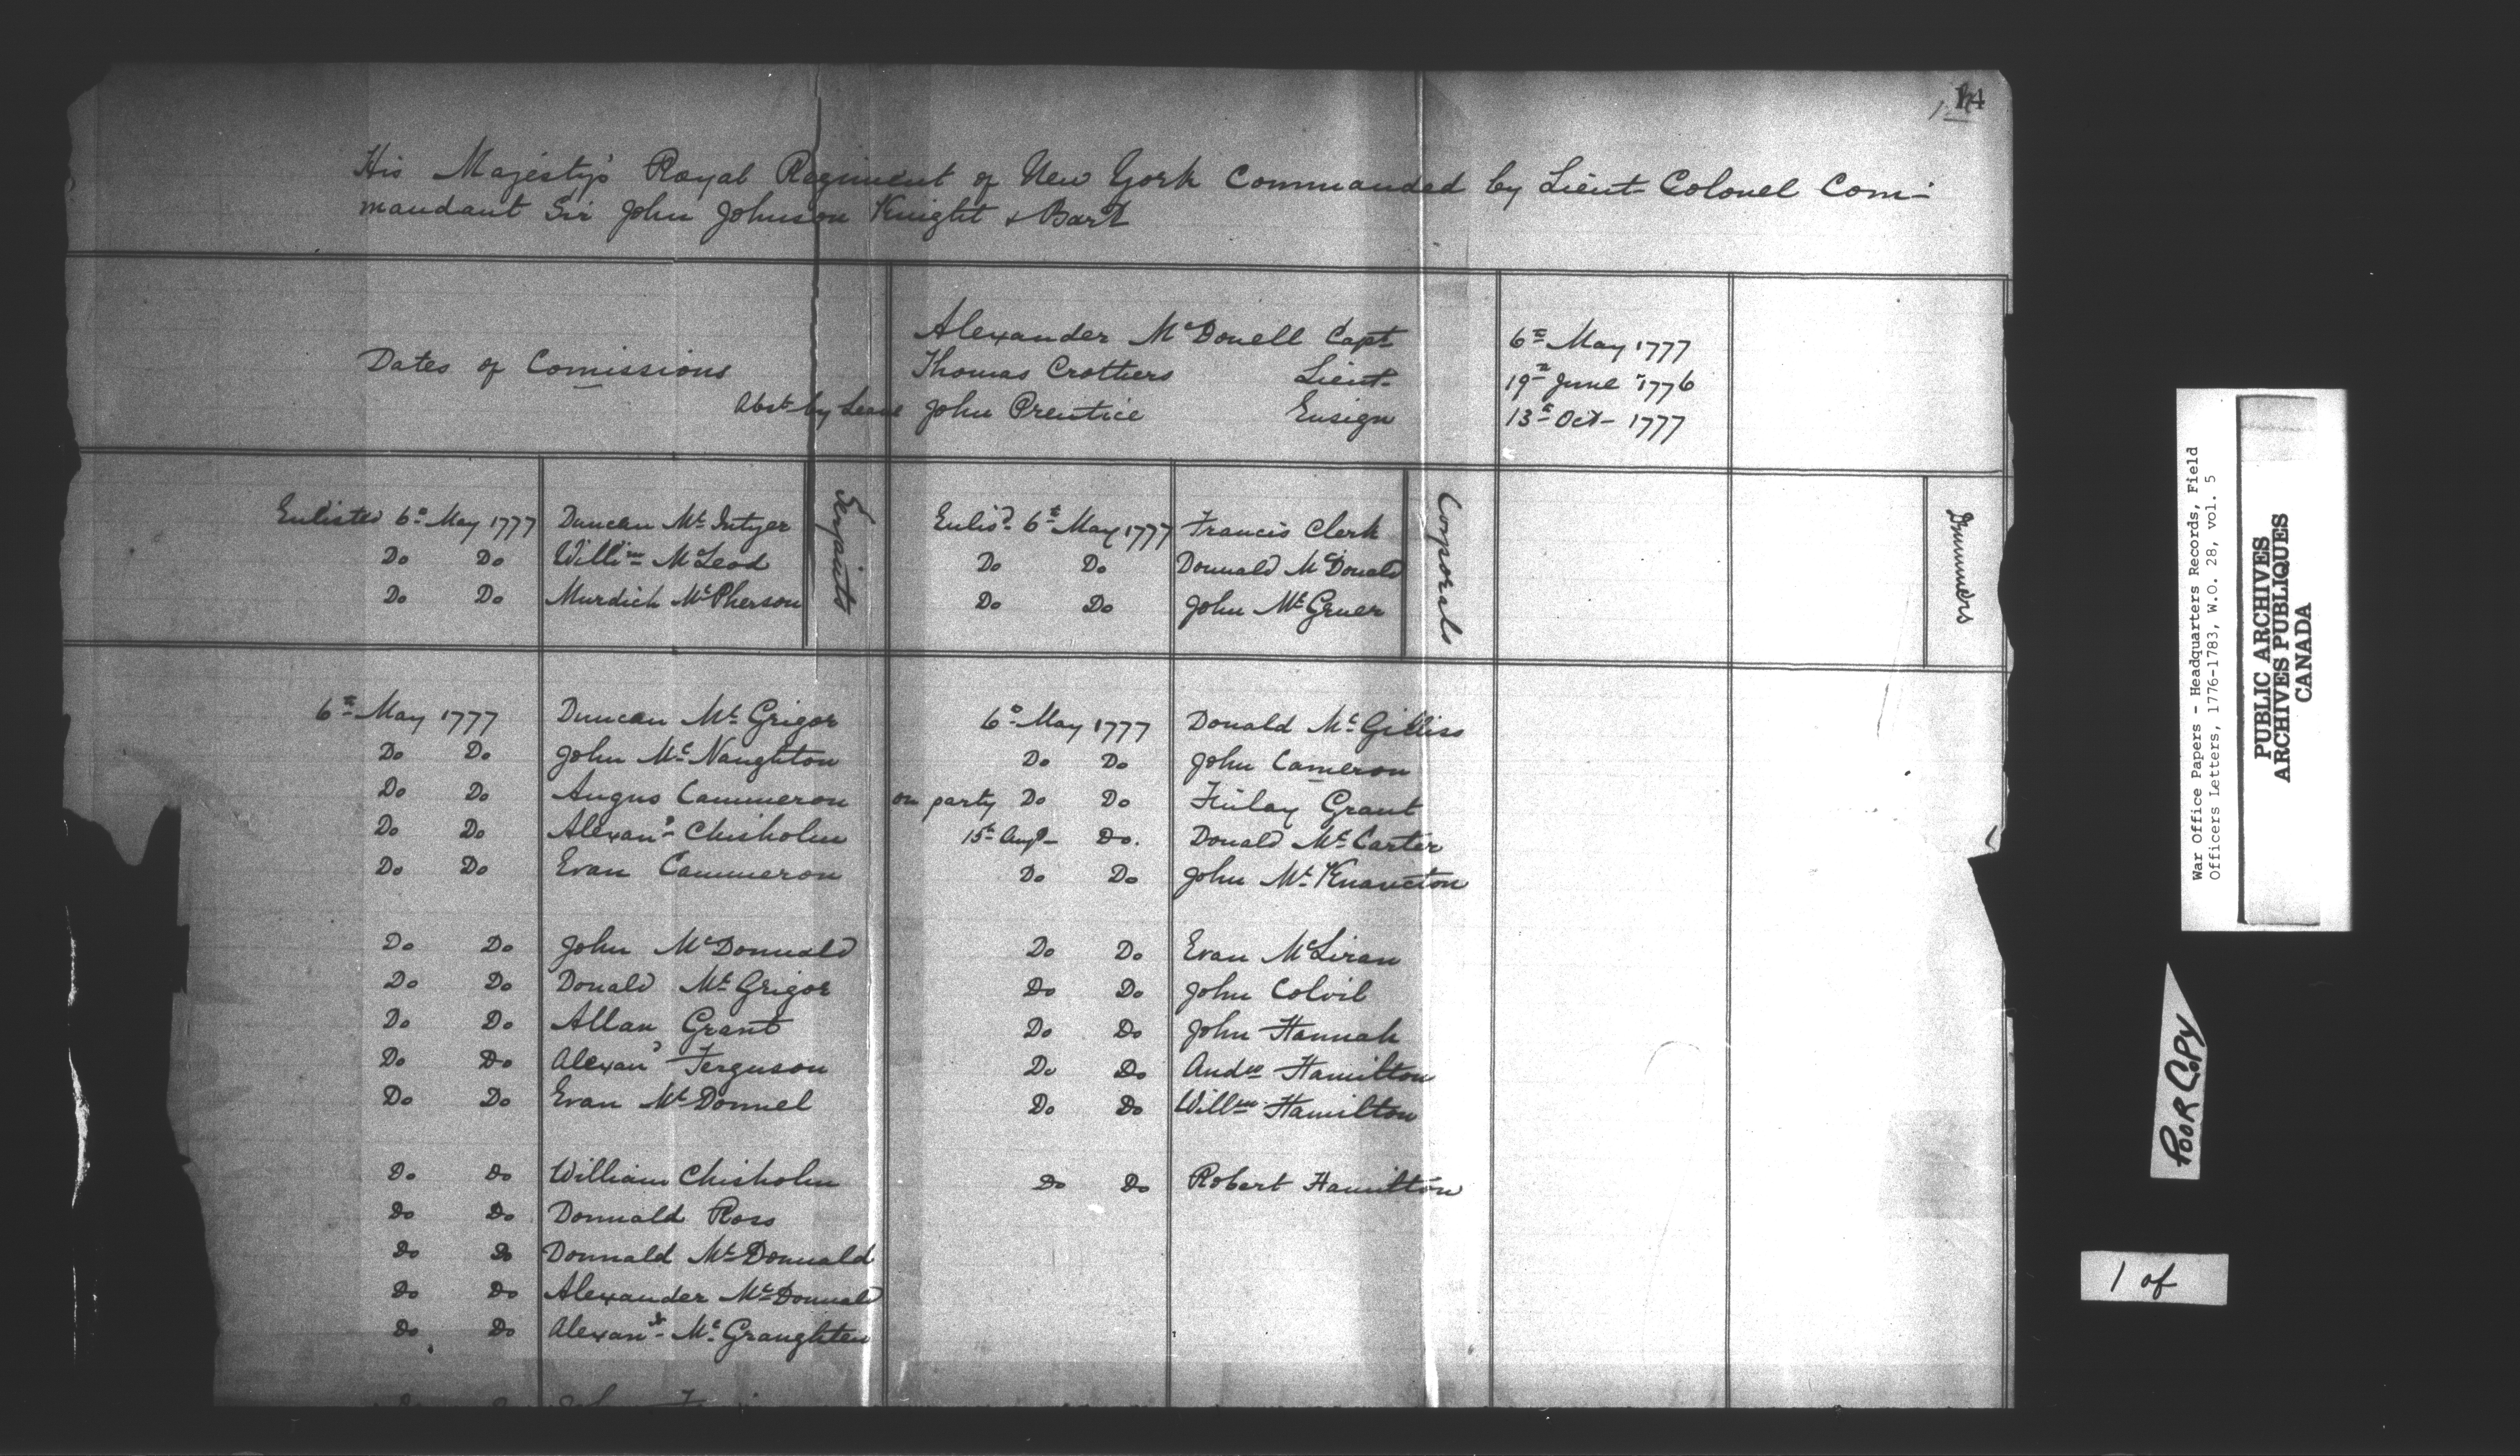 14
His Majesty's Royal Regiment of New York Commanded by Lieut- Colonel Com-
mandant Sir John Johnson Knight & Bart
Dates of Comissions
Alexander McDonell Capt 6th May 1777
Thomas Crothers Lieut- 19th June 1776
Abst by Leave John Prentice Ensign 13th Oct- 1777
Serjaints
Corporals
Drummers
Enlisted 6th May 1777 Duncan Mc Intyer Enlisd 6th May 1777 Francis Clerk
Do Do Willim McLeod Do Do Donnald McDonald
Do Do Murdich McPherson Do Do John McGruer
6th May 1777 Duncan Mc Grigor 6th May 1777 Donald Mc Gilliss
Do Do John Mc Naughton Do Do John Cameron
Do Do Angus Cammeron on party Do Do Finlay Grant
Do Do Alexanr Chisholm 15th Augt- Do. Donald Mc Carter
Do Do Evan Cammeron Do Do John Mc Knaveton
Do Do John McDonnald Do Do Evan McLiran
Do Do Donald Mc Grigor Do Do John Colvil
Do Do Allan Grant Do Do John Hannah
Do Do Alexanr Ferguson Do Do Andw Hamilton
Do Do Evan McDonnel Do Do Willm Hamilton
Do Do William Chisholm Do Do Robert Hamilton
Do Do Donnald Ross
Do Do Donnald McDonnald
Do Do Alexander McDonnald
Do Do Alexanr Mc Graughten
War Office Papers - Headquarters Records, Field
Officers Letters, 1776-1783, W.O. 28, vol. 5
PUBLIC ARCHIVES
ARCHIVES PUBLIQUES
CANADA
POOR COPY
1 of